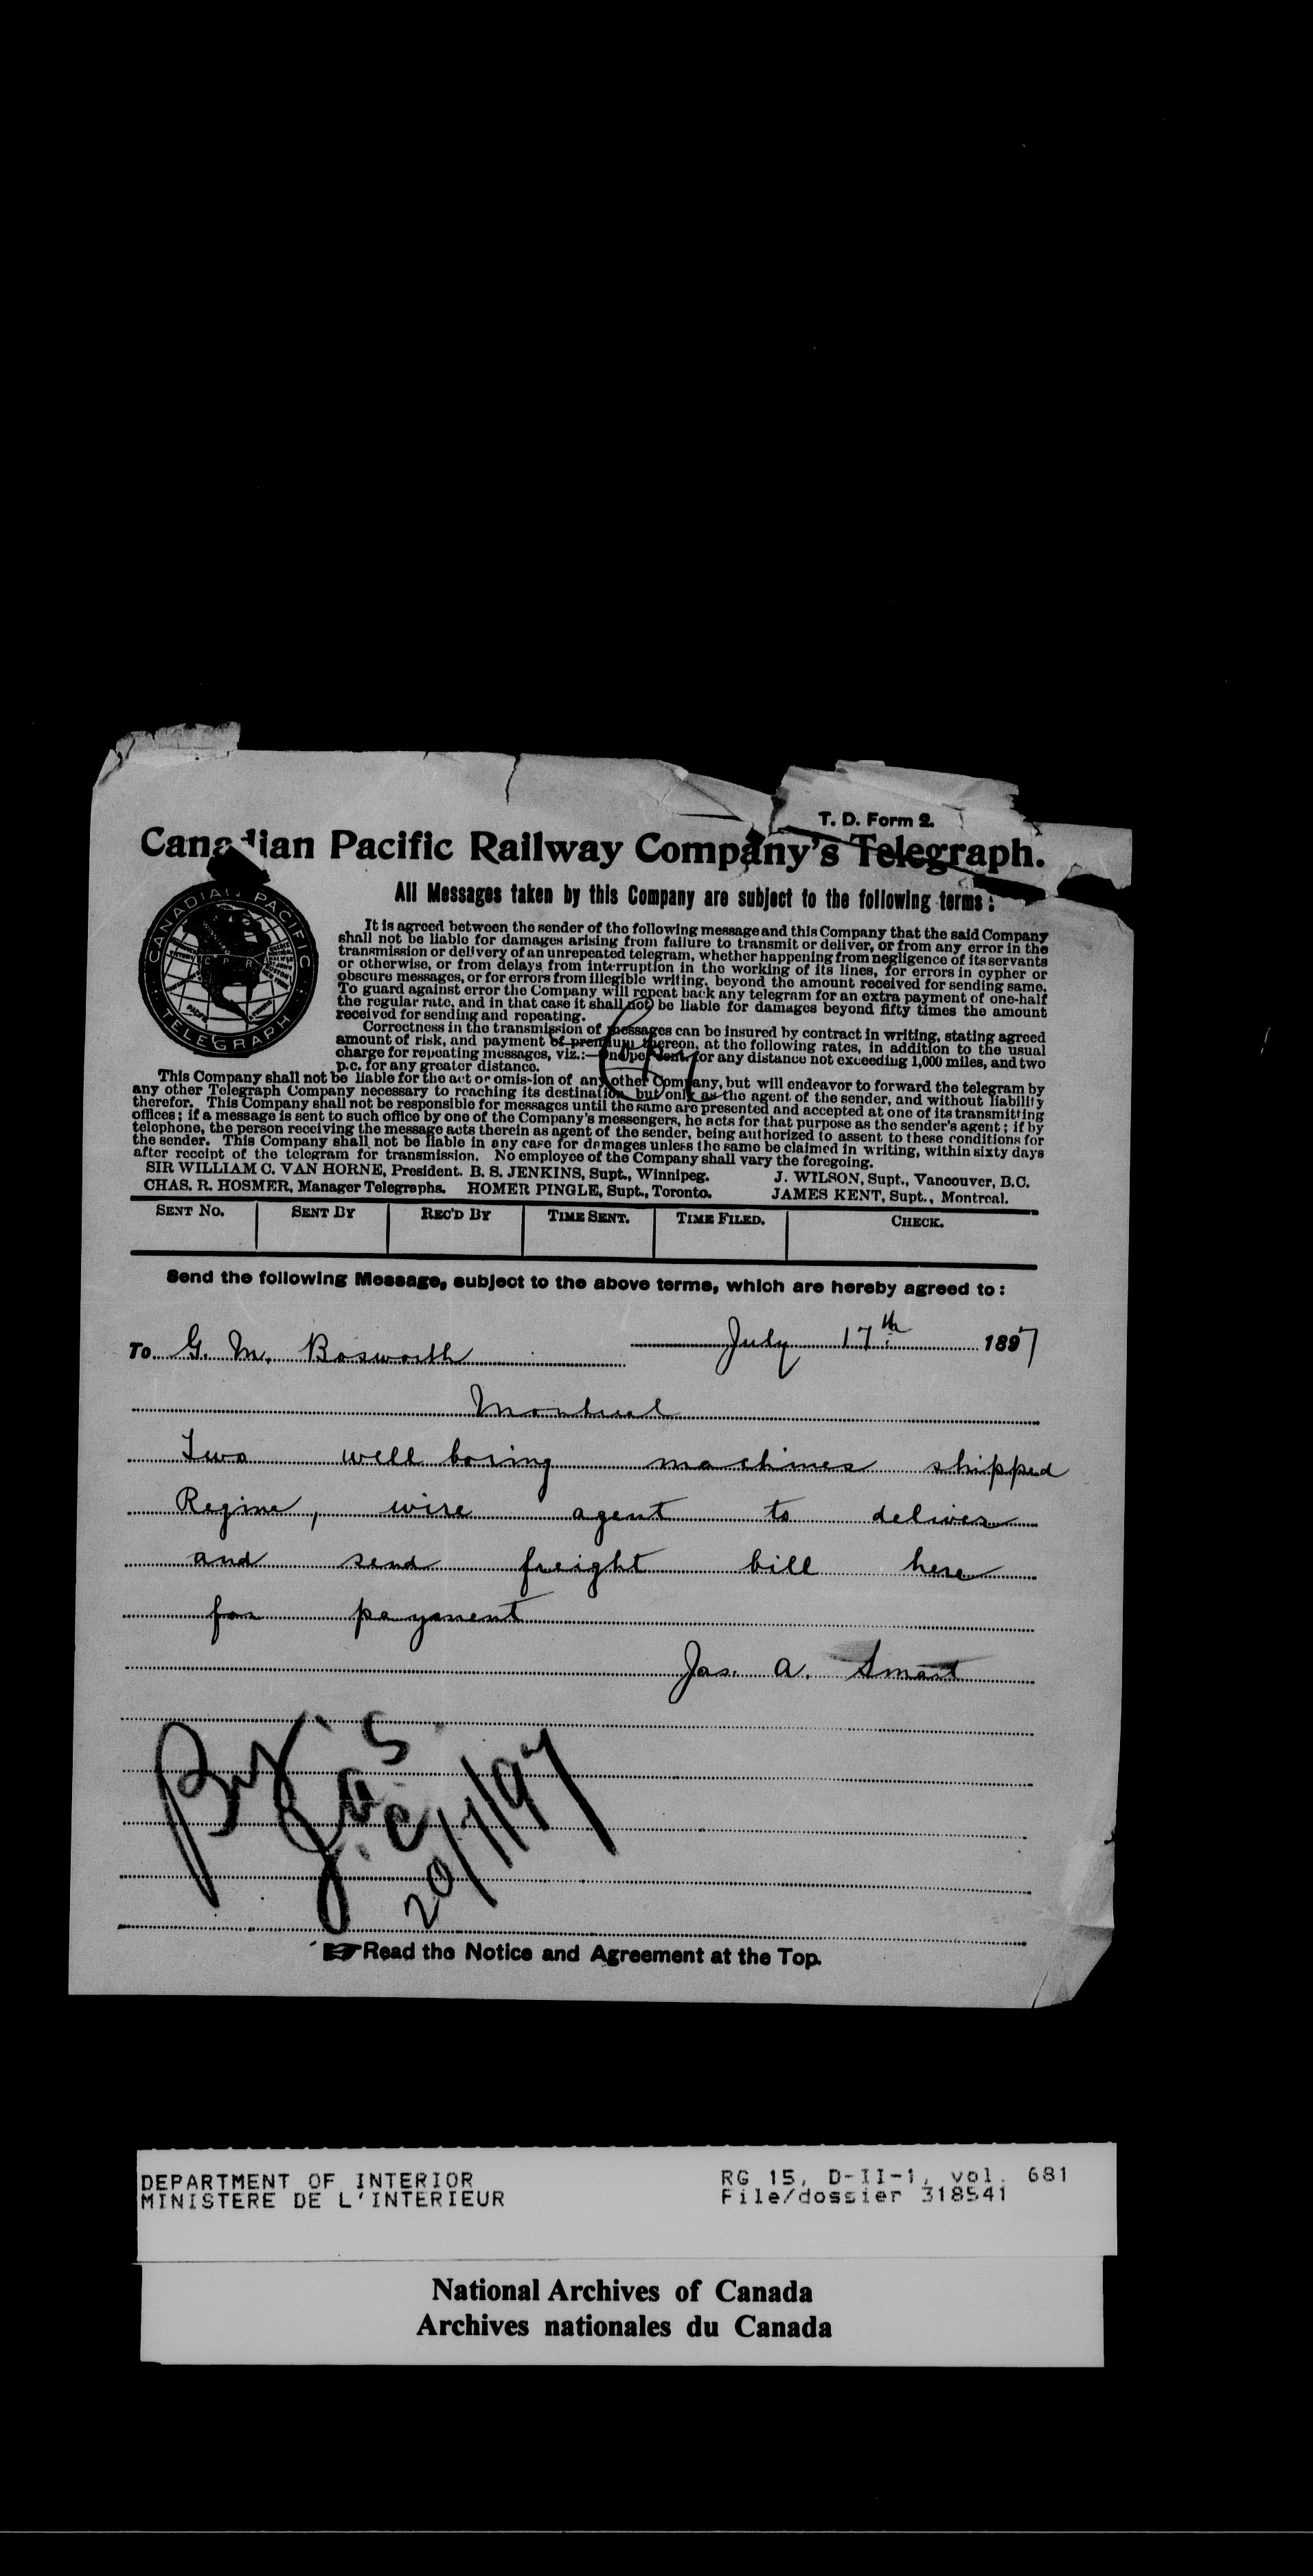 T. D. Form 2.
Canadian Pacific Railway Company's Telegraph.
All Messages taken by this Company are subject to the following terms:
CANADIAN PACIFIC
C P R
TELEGRAPH
It is agreed between the sender of the following message and this Company that the said Company
shall not be liable for damages arising from failure to transmit or deliver, or from any error in the
transmission or delivery of an unrepeated telegram, whether happening from negligence of its servants
or otherwise, or from delays from interruption in the working of its lines, for errors in cypher or
obscure messages, or for errors from illegible writing, beyond the amount received for sending same.
To guard against error the Company will repeat back any telegram for an extra payment of one-half
the regular rate, and in that case it shall not be liable for damages beyond fifty times the amount
received for sending and repeating.
Correctness in the transmission of messages can be insured by contract in writing, stating agreed
amount of risk, and payment of premium thereon, at the following rates, in addition to the usual
charge for repeating messages, viz.:—one per cent. for any distance not exceeding 1,000 miles, and two
p.c. for any greater distance.
This Company shall not be liable for the act or omission of any other Company, but will endeavor to forward the telegram by
any other Telegraph Company necessary to reaching its destination but only as the agent of the sender, and without liability
therefor. This Company shall not be responsible for messages until the same are presented and accepted at one of its transmitting
offices; if a message is sent to such office by one of the Company's messengers, he acts for that purpose as the sender's agent; if by
telephone, the person receiving the message acts therein as agent of the sender, being authorized to assent to these conditions for
the sender. This Company shall not be liable in any case for damages unless the same be claimed in writing, within sixty days
after receipt of the telegram for transmission. No employee of the Company shall vary the foregoing.
SIR WILLIAM C. VAN HORNE, President. B. S. JENKINS, Supt., Winnipeg. J. WILSON, Supt., Vancouver, B.C.
CHAS. R. HOSMER, Manager Telegraphs. HOMER PINGLE, Supt., Toronto. JAMES KENT, Supt., Montreal.
SENT NO. SENT BY REC'D BY TIME SENT. TIME FILED. CHECK.
Send the following Message, subject to the above terms, which are hereby agreed to:
July 17th 1897
To G. M. Bosworth
Montreal
Two well boring machines shipped
Regina, wire agent to deliver
and send freight bill here
for payment
Jas. A. Smart
20/7/97
Read the Notice and Agreement at the Top.
DEPARTMENT OF INTERIOR RG 15, D-II-1, vol. 681
MINISTERE DE L'INTERIEUR File/dossier 318541
National Archives of Canada
Archives nationales du Canada